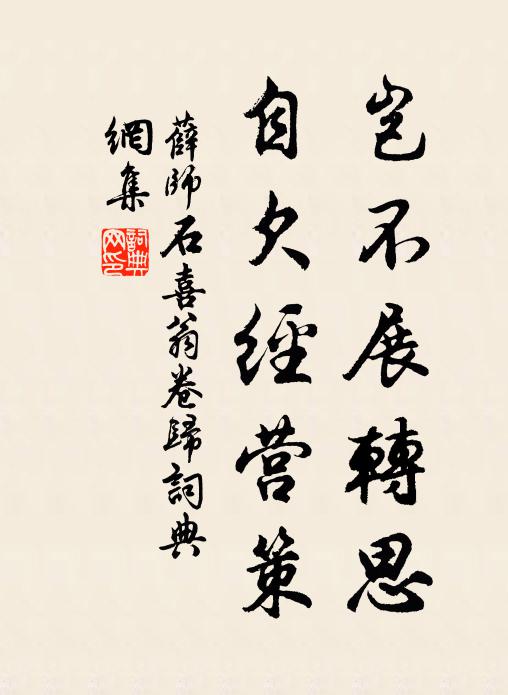 豈不展轉思
自欠經营策
薛師石喜翁卷歸詞典
網集
詞典
网印